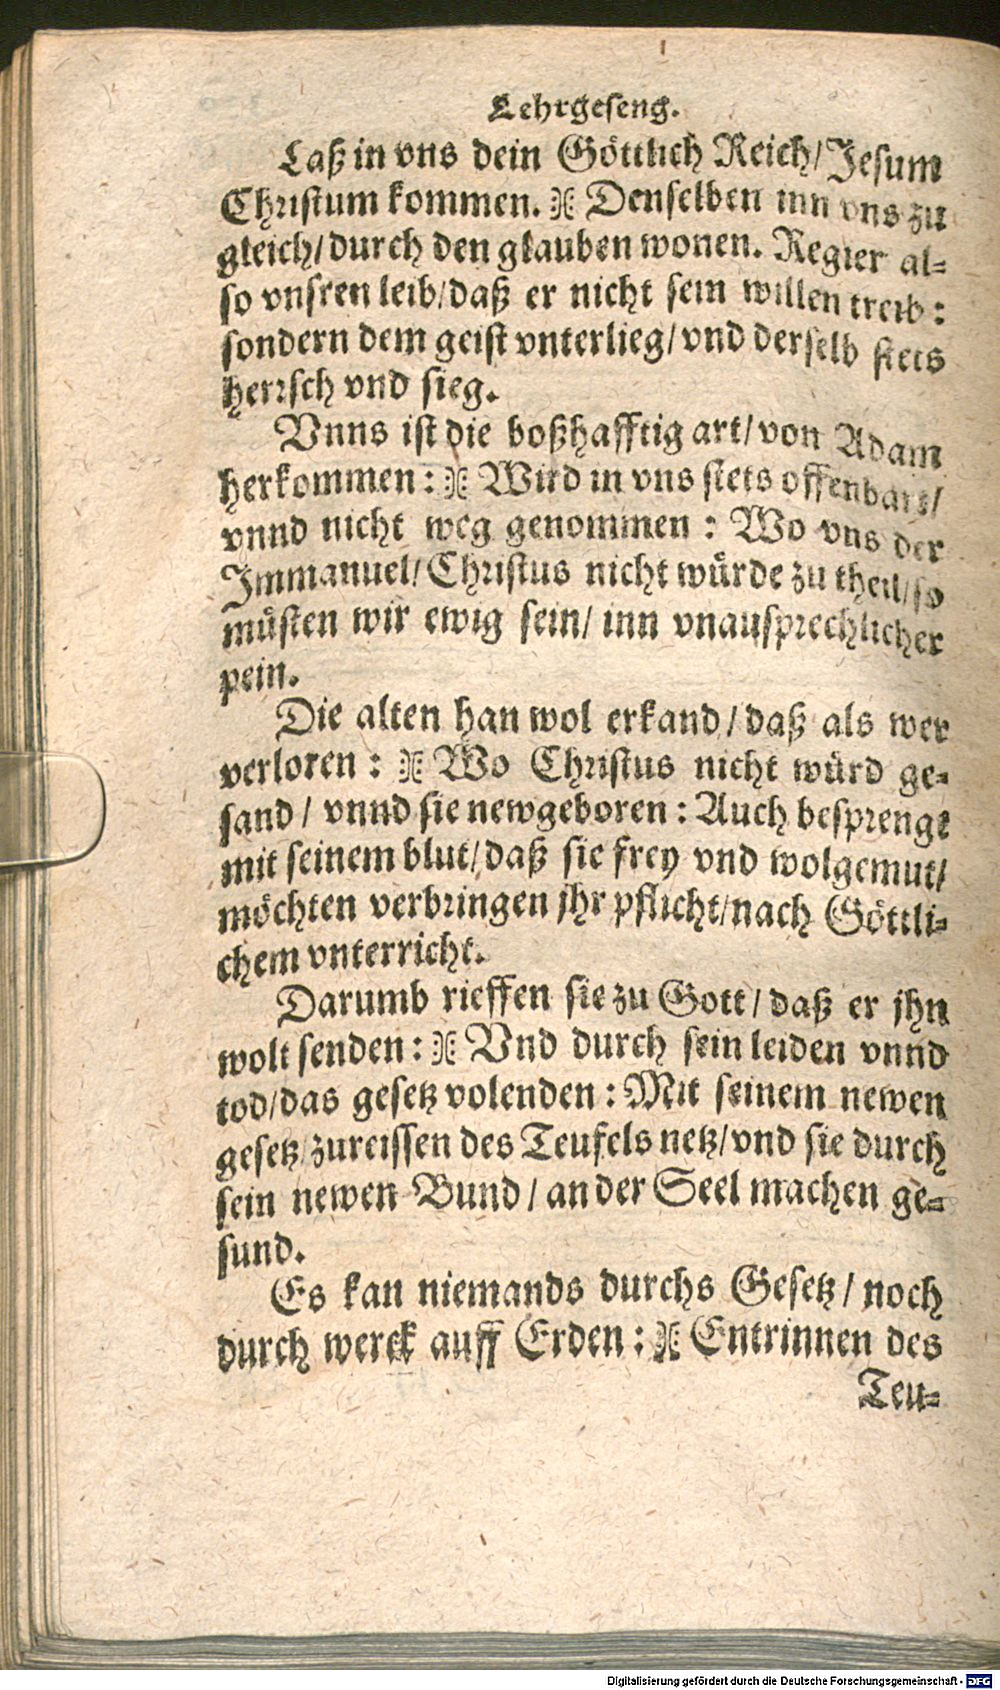 Lehrgeseng.
Laß in vns dein Göttlich Reich/ Jesum
Christum kommen. Denselben inn vns zu
gleich/ durch den glauben wonen. Regier al-
so vnsren leib/ daß er nicht sein willen treib:
sondern dem geist vnterlieg/ vnd derselb stets
herrsch vnd sieg.
Vnns ist die boßhafftig art/ von Adam
herkommen: Wird in vns stets offenbart/
vnnd nicht weg genommen: Wo vns der
Immanuel/ Christus nicht würde zu theil/ so
müsten wir ewig sein/ inn vnausprechlicher
pein.
Die alten han wol erkand/ daß als wer
verloren: Wo Christus nicht würd ge-
sand/ vnnd sie newgeboren: Auch besprengt
mit seinem blut/ daß sie frey vnd wolgemut/
möchten verbringen jhr pflicht/ nach Göttli-
chem vnterricht.
Darumb rieffen sie zu Gott/ daß er jhn
wolt senden: Vnd durch sein leiden vnnd
tod/ das gesetz volenden: Mit seinem newen
gesetz/ zureissen des Teufels netz/ vnd sie durch
sein newen Bund/ an der Seel machen ge-
sund.
Es kan niemands durchs Gesetz/ noch
durch werck auff Erden: Entrinnen des
Teu-
Digitalisierung gefördert durch die Deutsche Forschungsgemeinschaft - DFG